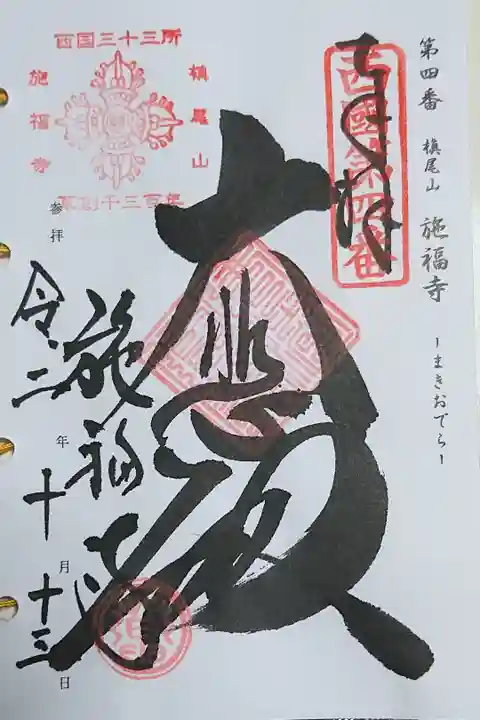 第四番 槇尾山 施福寺 ーまきおでらー
西國第四番
奉拝
大悲殿
西国三十三所
槙尾山
施福寺
草創千三百年
参拝
施福寺
令二年十月十三日